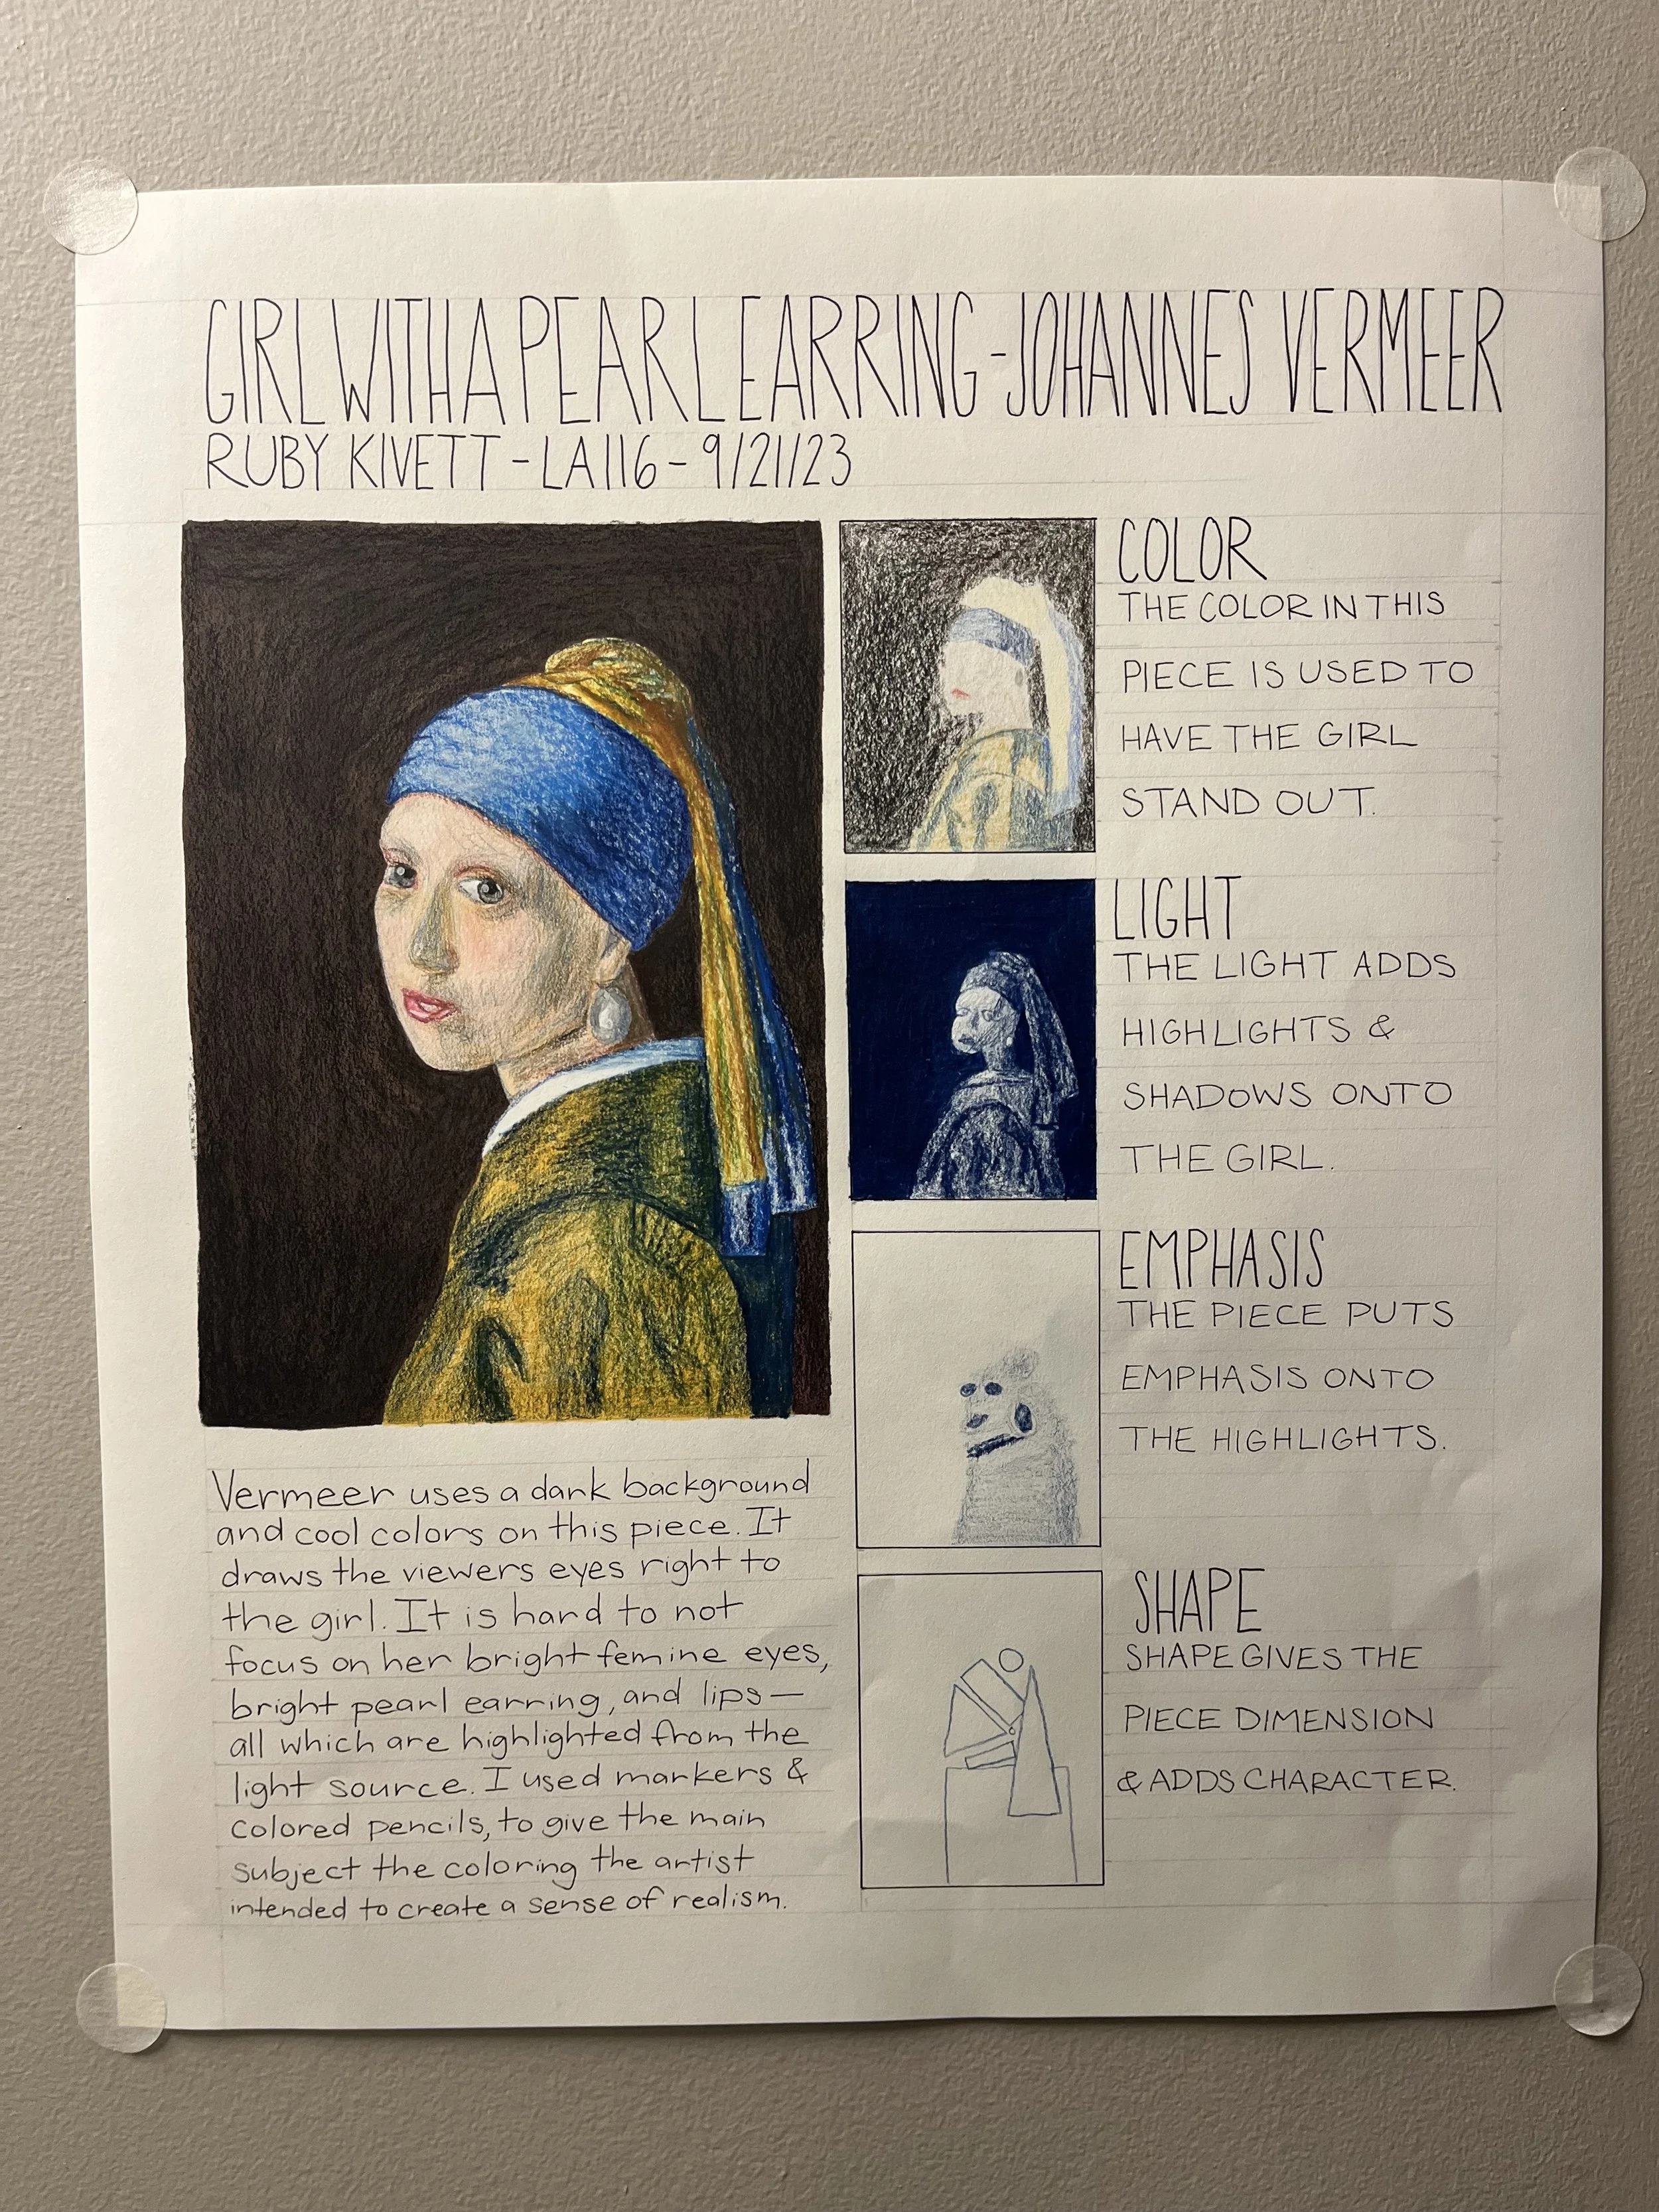 GIRL WITH A PEARL EARRING - JOHANNES VERMEER
RUBY KIVETT - LA116 - 9/21/23
COLOR
THE COLOR IN THIS
PIECE IS USED TO
HAVE THE GIRL
STAND OUT.
LIGHT
THE LIGHT ADDS
HIGHLIGHTS &
SHADOWS ONTO
THE GIRL.
EMPHASIS
THE PIECE PUTS
EMPHASIS ONTO
THE HIGHLIGHTS.
SHAPE
SHAPE GIVES THE
PIECE DIMENSION
& ADDS CHARACTER.
Vermeer uses a dark background
and cool colors on this piece. It
draws the viewers eyes right to
the girl. It is hard to not
focus on her bright femine eyes,
bright pearl earring, and lips—
all which are highlighted from the
light source. I used markers &
colored pencils, to give the main
subject the coloring the artist
intended to create a sense of realism.